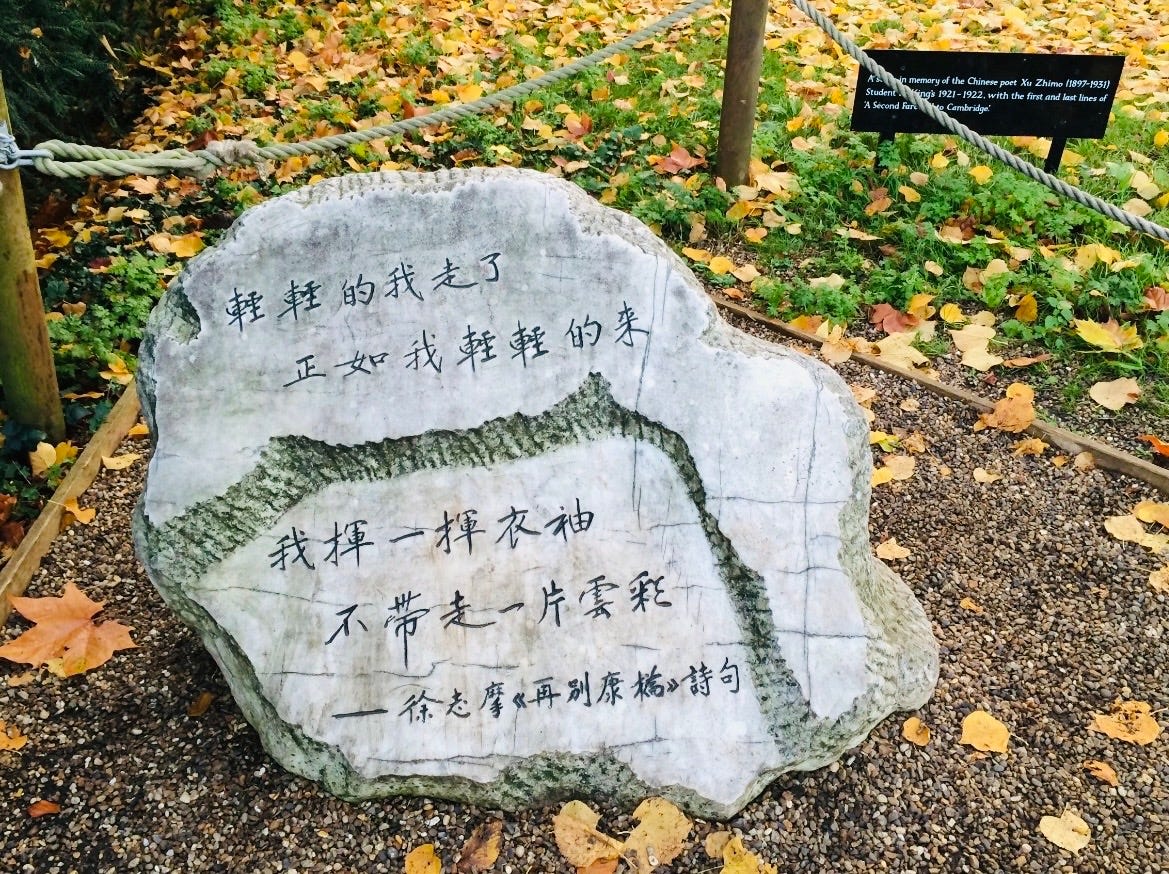 輕輕的我走了
正如我輕輕的来
我揮一揮衣袖
不帶走一片雲彩
—徐志摩《再别康橋》詩句
A in memory of the Chinese poet Xu Zhimo (1897-1931)
Student 1921-1922, with the first and last lines of
'A Second to Cambridge.'